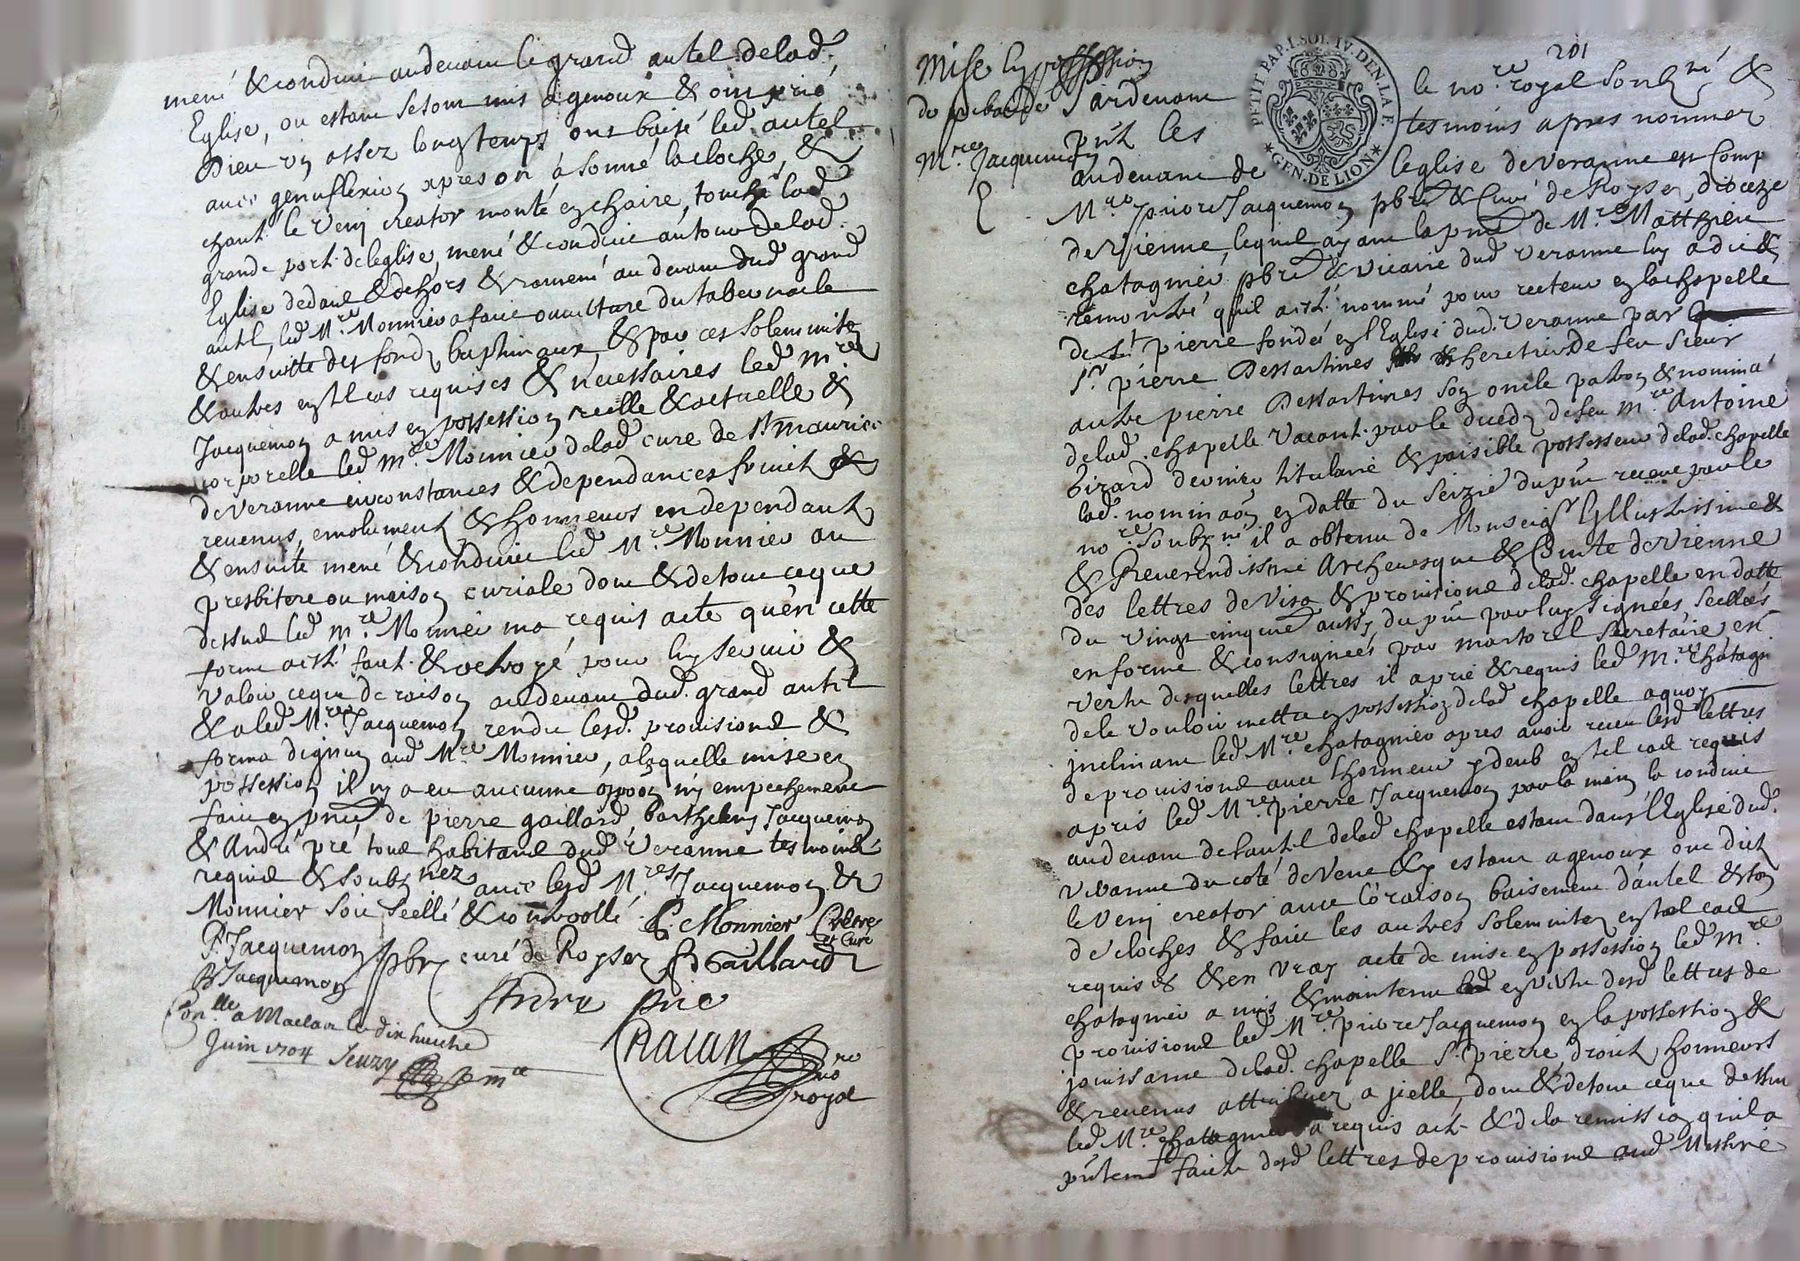 mené & conduit audevant le grand autel delad.
Eglise, ou estant se sont mis a genoux & ont prié
Dieu un assez longtemps ont baisé led autel
avec genuflexion apres on a sonné la cloche, &
chant. le Veni creator monté en chaire, touché lad
grande port. de leglise, mené & conduit autour delad.
Eglise dedans & dehors & ramené au devant dud grand
autel, led Mre. Monnier a faict ouverture du tabernacle
& ensuitte des fonds baptimaux, & par ces solemnites
& autres en tel cas requises & necessaires led mre
Jacquemon a mis en possession reelle & actuelle &
corporelle led mre. Monnier delad cure de St. maurice
de Veranne circonstances & dependances fruicts &
revenus, emoluments & honneurs en dependants
& ensuite mené & conduit led Mre. Monnier au
presbitere ou maison curiale dont & de tout ceque
dessus led mre. Monnier ma requis acte quen cette
forme a esté faict & octroyé pour luy servir &
valoir ceque de raison audevant dud. grand autel
& a led Mre. Jacquemon rendu lesd. provisions &
forma dignum aud Mre Monnier, a laquelle mise en
possession il ny a eu aucunne oppoon ny empechement
faict en pnce de pierre gaillard, barthelemy Jacquemon
& André pré tous habitans dud Veranne tesmoins
requis & soubznez avec lesd Mres Jacquemon &
Monnier soit scellé & controollé. C. Monnier prebtre
et Curé
P. Jacquemon pbre curé de Roysey B Gaillard
B Jacquemon
Andre prie
Con.lle a Maclas le dix huictie
Juin 1704 Seuzy
Racan no
royal
201
Mise en possession
de prebande
Mre Jacquemon
Pardevant le nore. royal soubzné &
pnt les tesmoins apres nommez
audevant de leglise de Veranne est Comp
Mre pierre Jacquemon pbre & Curé de Roysey, dioceze
de Vienne, lequel ayant la pnce de Mre Matthieu
chatagnier, pbre & vicaire dud Veranne luy a dit &
remontré quil a esté nommé pour recteur en la chapelle
de St pierre fondée en l'Eglise dud. Veranne par
Sr. pierre Dessartines heretier de feu sieur
autre pierre Dessartines son oncle patron & nomina.
delad. chapelle vacant par le decedz de feu mre Antoine
birard dernier titulaire & paisible possesseur delad. chapelle
lad. nominaon en datte du seizie du pnt receue par le
nore. soubzné il a obtenu de Monseigr Lillustrissime
& Reverendissime Archevesque & Comte de Vienne
des lettres de visa & provisions delad. chapelle en datte
du vingt cinquie aussy du pnt par luy signées, scellées
en forme & consignées par martorel secretaire, en
vertu desquelles lettres il a prié & requis led Mre. chatagn
de le vouloir mettre en possession delad chapelle a quoy
inclinant led Mre. chatagnier apres avoir receu lesd lettres
de provisions avec lhonneur & deub en tel cas requis
apris led Mre pierre Jacquemon par la main la conduit
audevant de lautel delad chapelle estant dans lEglise dud.
Veranne du coté de Vent & y estant a genoux ont dict
le Veni creator avec loraison baisement dautel & son
de cloches & faict les autres solemnites en tel cas
requises & en vray acte de mise en possession led Mre
chatagnier a mis & maintenu en vertu desd lettres de
provisions led Mre. pierre Jacquemon en la possession &
jouissance delad. chapelle St. pierre, droicts honneurs
& revenus attribuez a jcelle, dont & de tout ceque dessus
led Mre chatagnier a requis acte & de la remission quil a
pntemt faicte desd lettres de provisions aud Messire
PETIT PAP. I. SOL. IV. DEN. LA F.
GEN. DE LION